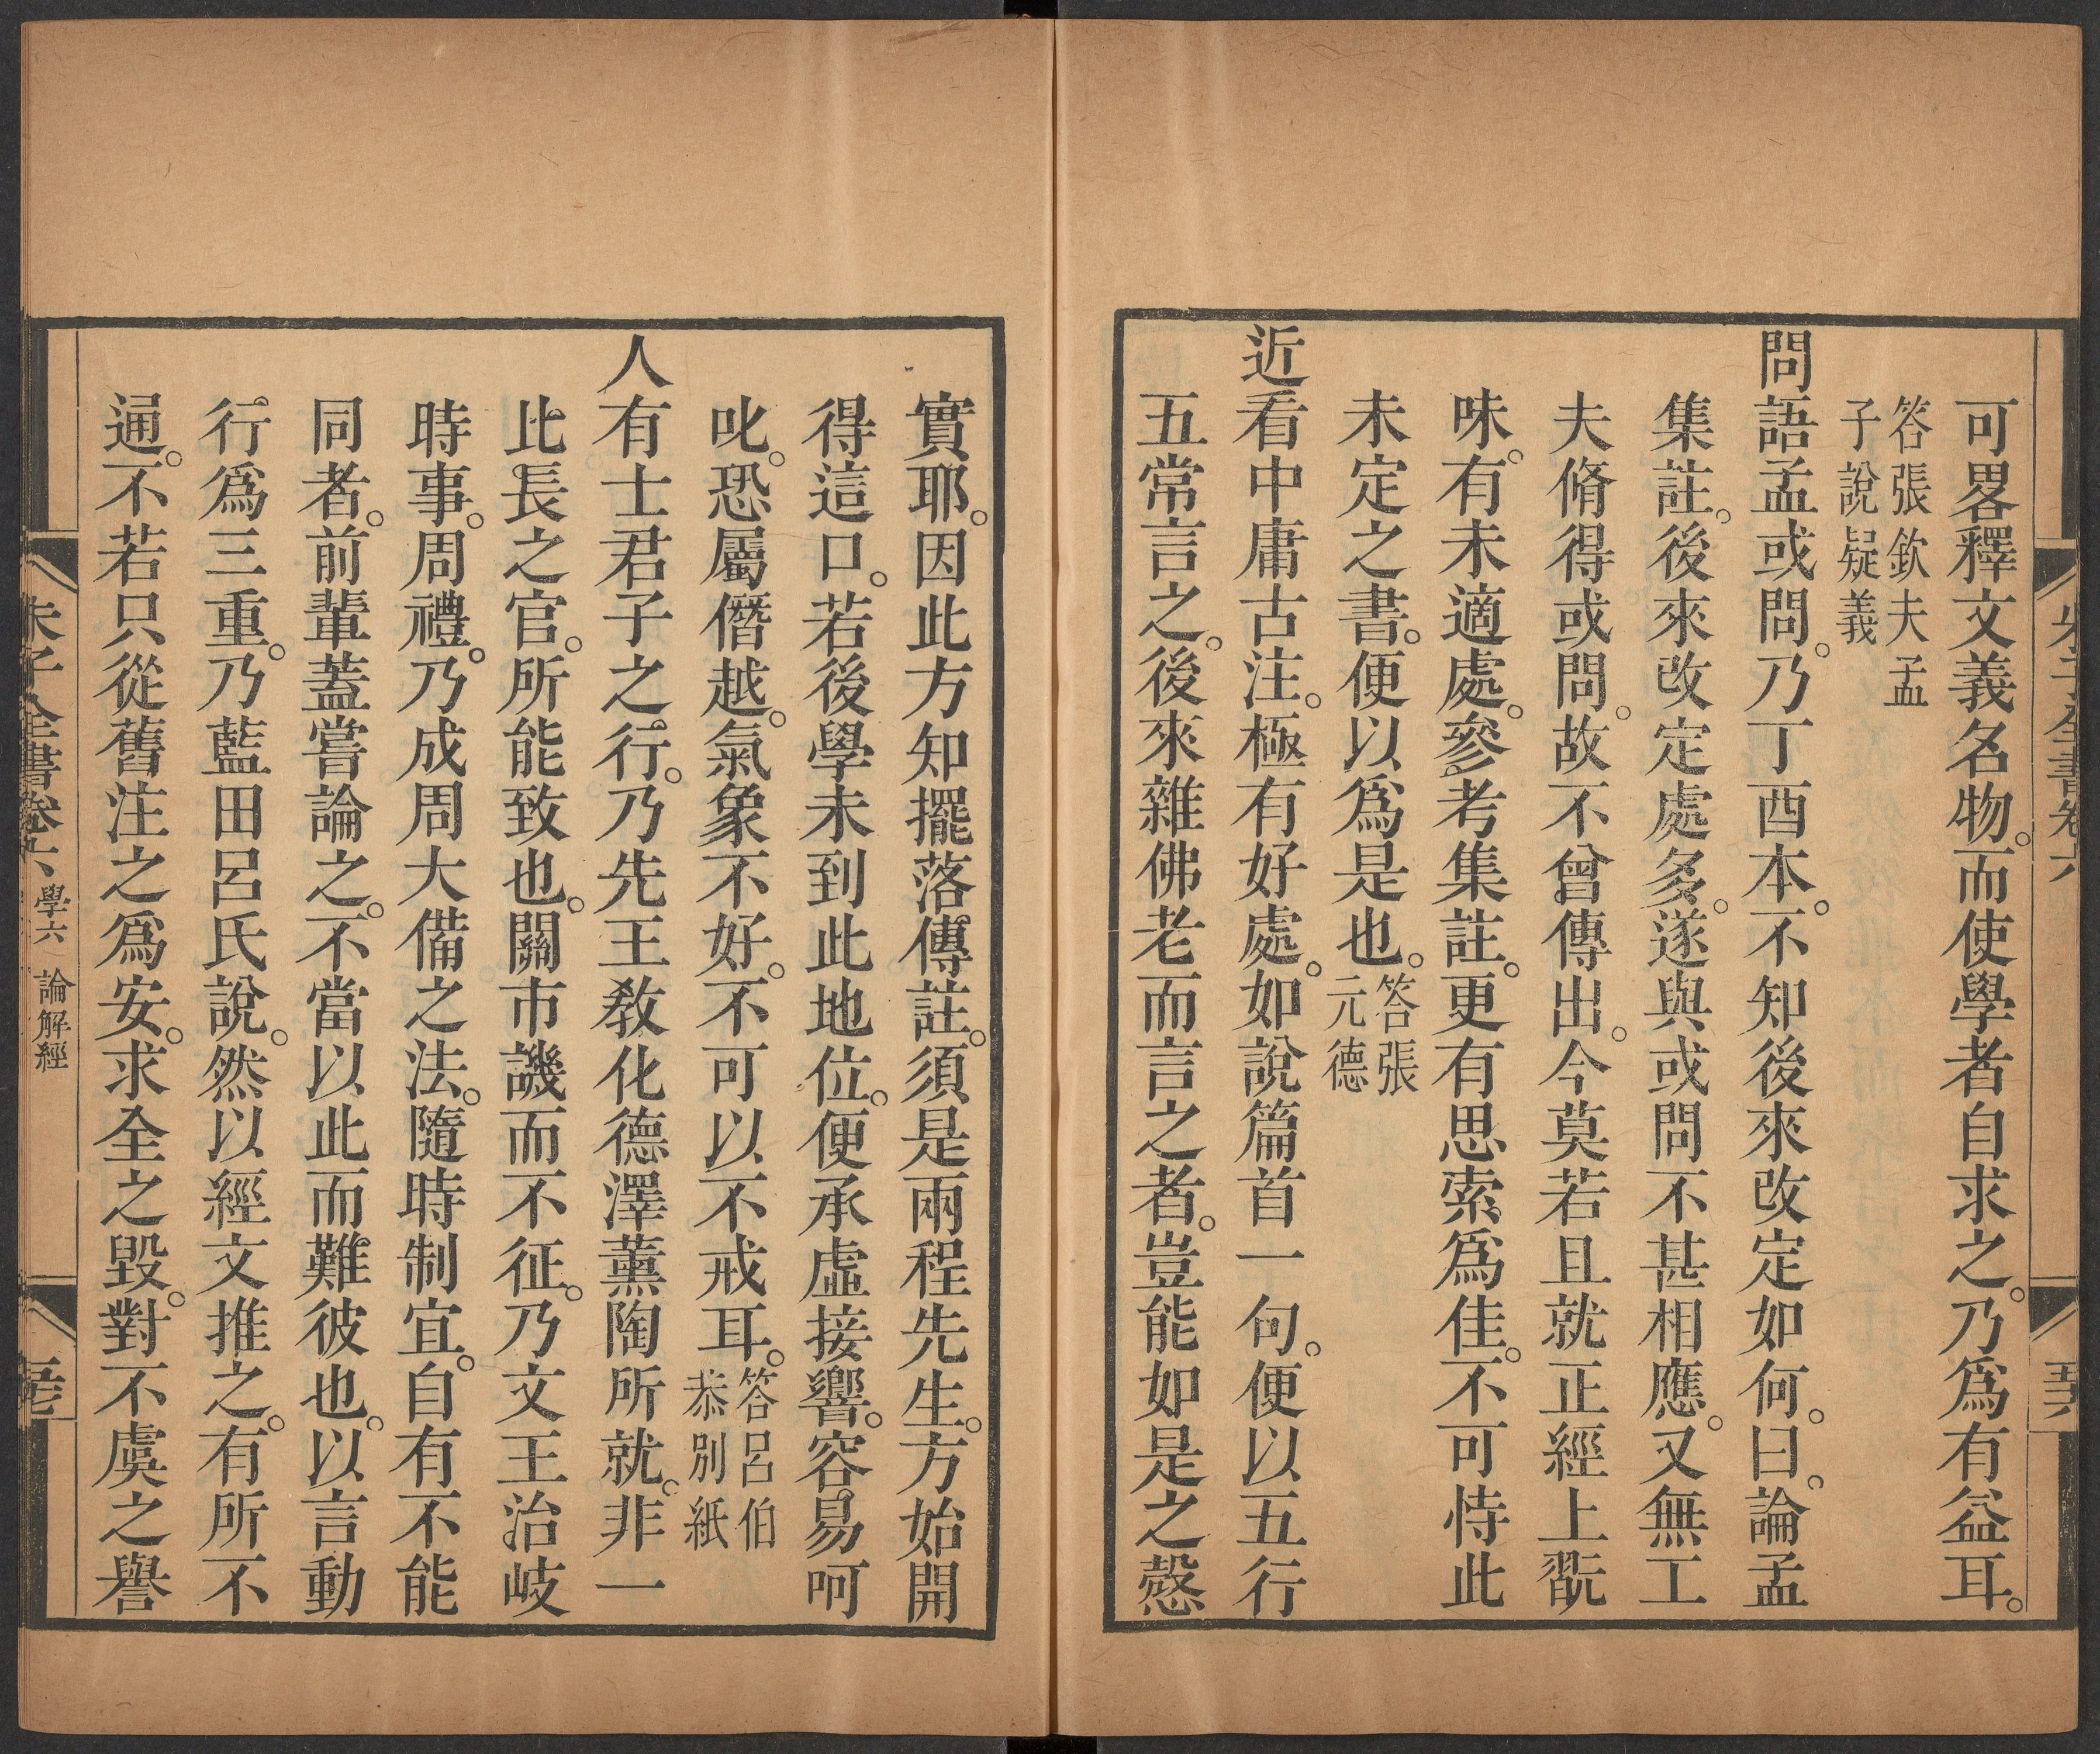 可畧釋文義名物。而使學者自求之。乃爲有益耳。
答張欽夫孟
子說疑義
問語孟或問。乃丁酉本。不知後來改定如何。曰。論孟
集註。後來改定處多。遂與或問不甚相應。又無工
夫脩得或問。故不曾傳出。今莫若且就正經上翫
味。有未適處。參考集註。更有思索爲佳。不可恃此
未定之書。便以爲是也。
答張
元德
近看中庸古注。極有好處。如說篇首一句。便以五行
五常言之。後來雜佛老而言之者。豈能如是之慤
實耶。因此方知擺落傳註。須是兩程先生。方始開
得這口。若後學未到此地位。便承虛接響。容易呵
叱。恐屬僭越。氣象不好。不可以不戒耳。
答呂伯
恭別紙
人有士君子之行。乃先王敎化德澤薰陶所就。非一
此長之官。所能致也。關市譏而不征。乃文王治岐
時事。周禮。乃成周大備之法。隨時制宜。自有不能
同者。前輩蓋嘗論之。不當以此而難彼也。以言動
行爲三重。乃藍田呂氏說。然以經文推之。有所不
通。不若只從舊注之爲安。求全之毀。對不虞之譽
朱子全書卷六 學六 論解經